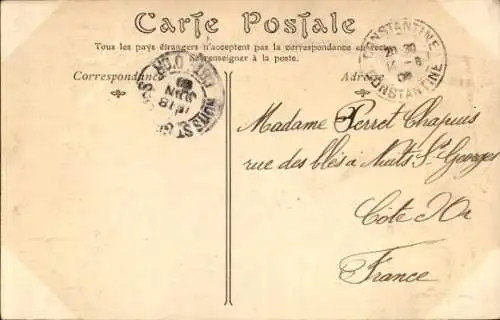 Carte Postale
Tous les pays étrangers n'acceptent pas la correspondance au recto
Se renseigner à la poste.
Correspondance
Adresse
CONSTANTINE
CONSTANTINE
NUITS ST
CÔTE D'OR
18
JUIN
Madame Perret Chapuis
rue des blés à Nuits St Georges
Côte d'Or
France